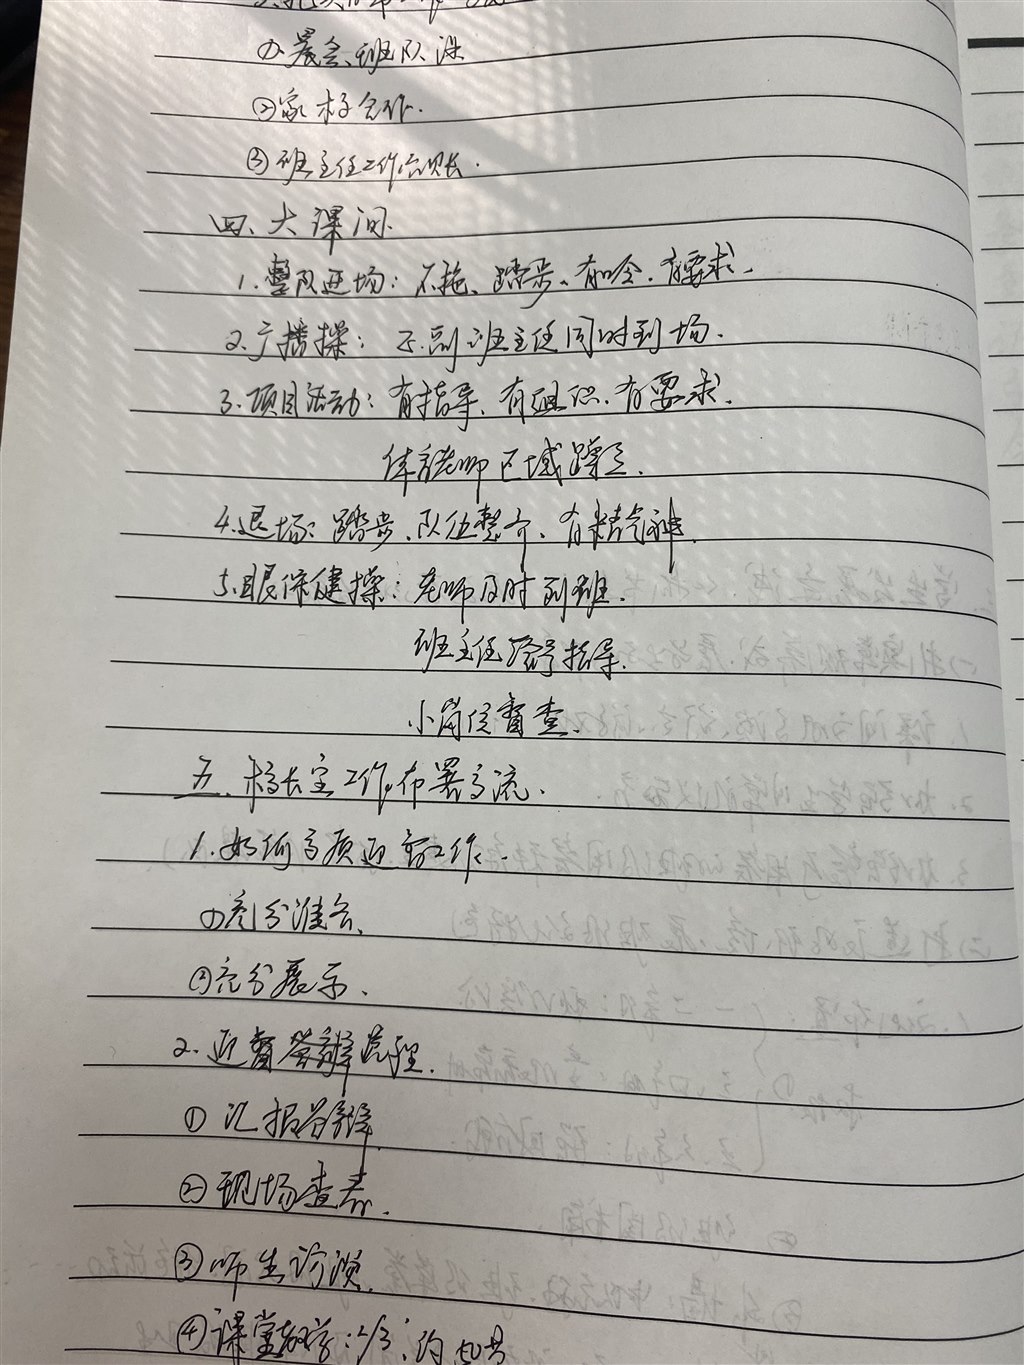 ①晨会、班队课
②家校合作.
③班主任工作台账.
四、大课间.
1.整队进场:不拖、踏步、有口令、有要求.
2.广播操:正副班主任同时到场.
3.项目活动:有指导、有组织、有要求.
体育老师区域蹲点.
4.退场:踏步、队伍整齐、有精气神.
5.眼保健操:老师及时到班.
班主任 指导.
小岗位督查.
五、校长室工作布置交流.
1.如何高质迎 工作.
①充分准备.
②充分展示.
2.迎督答辩流程.
①汇报答辩
②现场查看.
③师生访谈
④课堂教学:2/3,约